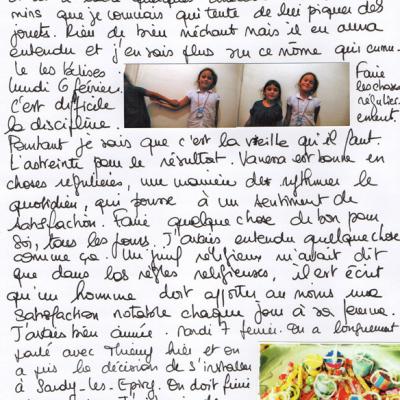 mins que je connais qui tente de lui piquer des
jouets. Rien de bien méchant mais il en aura
entendu et j'en sais plus sur ce môme qui cumu-
le les bêtises.
lundi 6 février.
c'est difficile
la discipline.
Faire
les choses
régulier
ement.
Pourtant je sais que c'est la vieille qu'il faut.
L'astreinte pour le résultat. Vanessa est bonne en
choses régulières, une manière de rythmer le
quotidien, qui pousse à un sentiment de
satisfaction. Faire quelque chose de bon pour
soi, tous les jours. J'avais entendu quelque chose
comme ça. Un juif religieux m'avait dit
que dans les règles religieuses, il est écrit
qu'un homme doit apporter au moins une
satisfaction notable chaque jour à sa femme.
J'avais bien aimé. mardi 7 février. On a longuement
parlé avec Thierry hier et on
a pris la décision de s'installer
à Saudy-les-Epiry. On doit finir